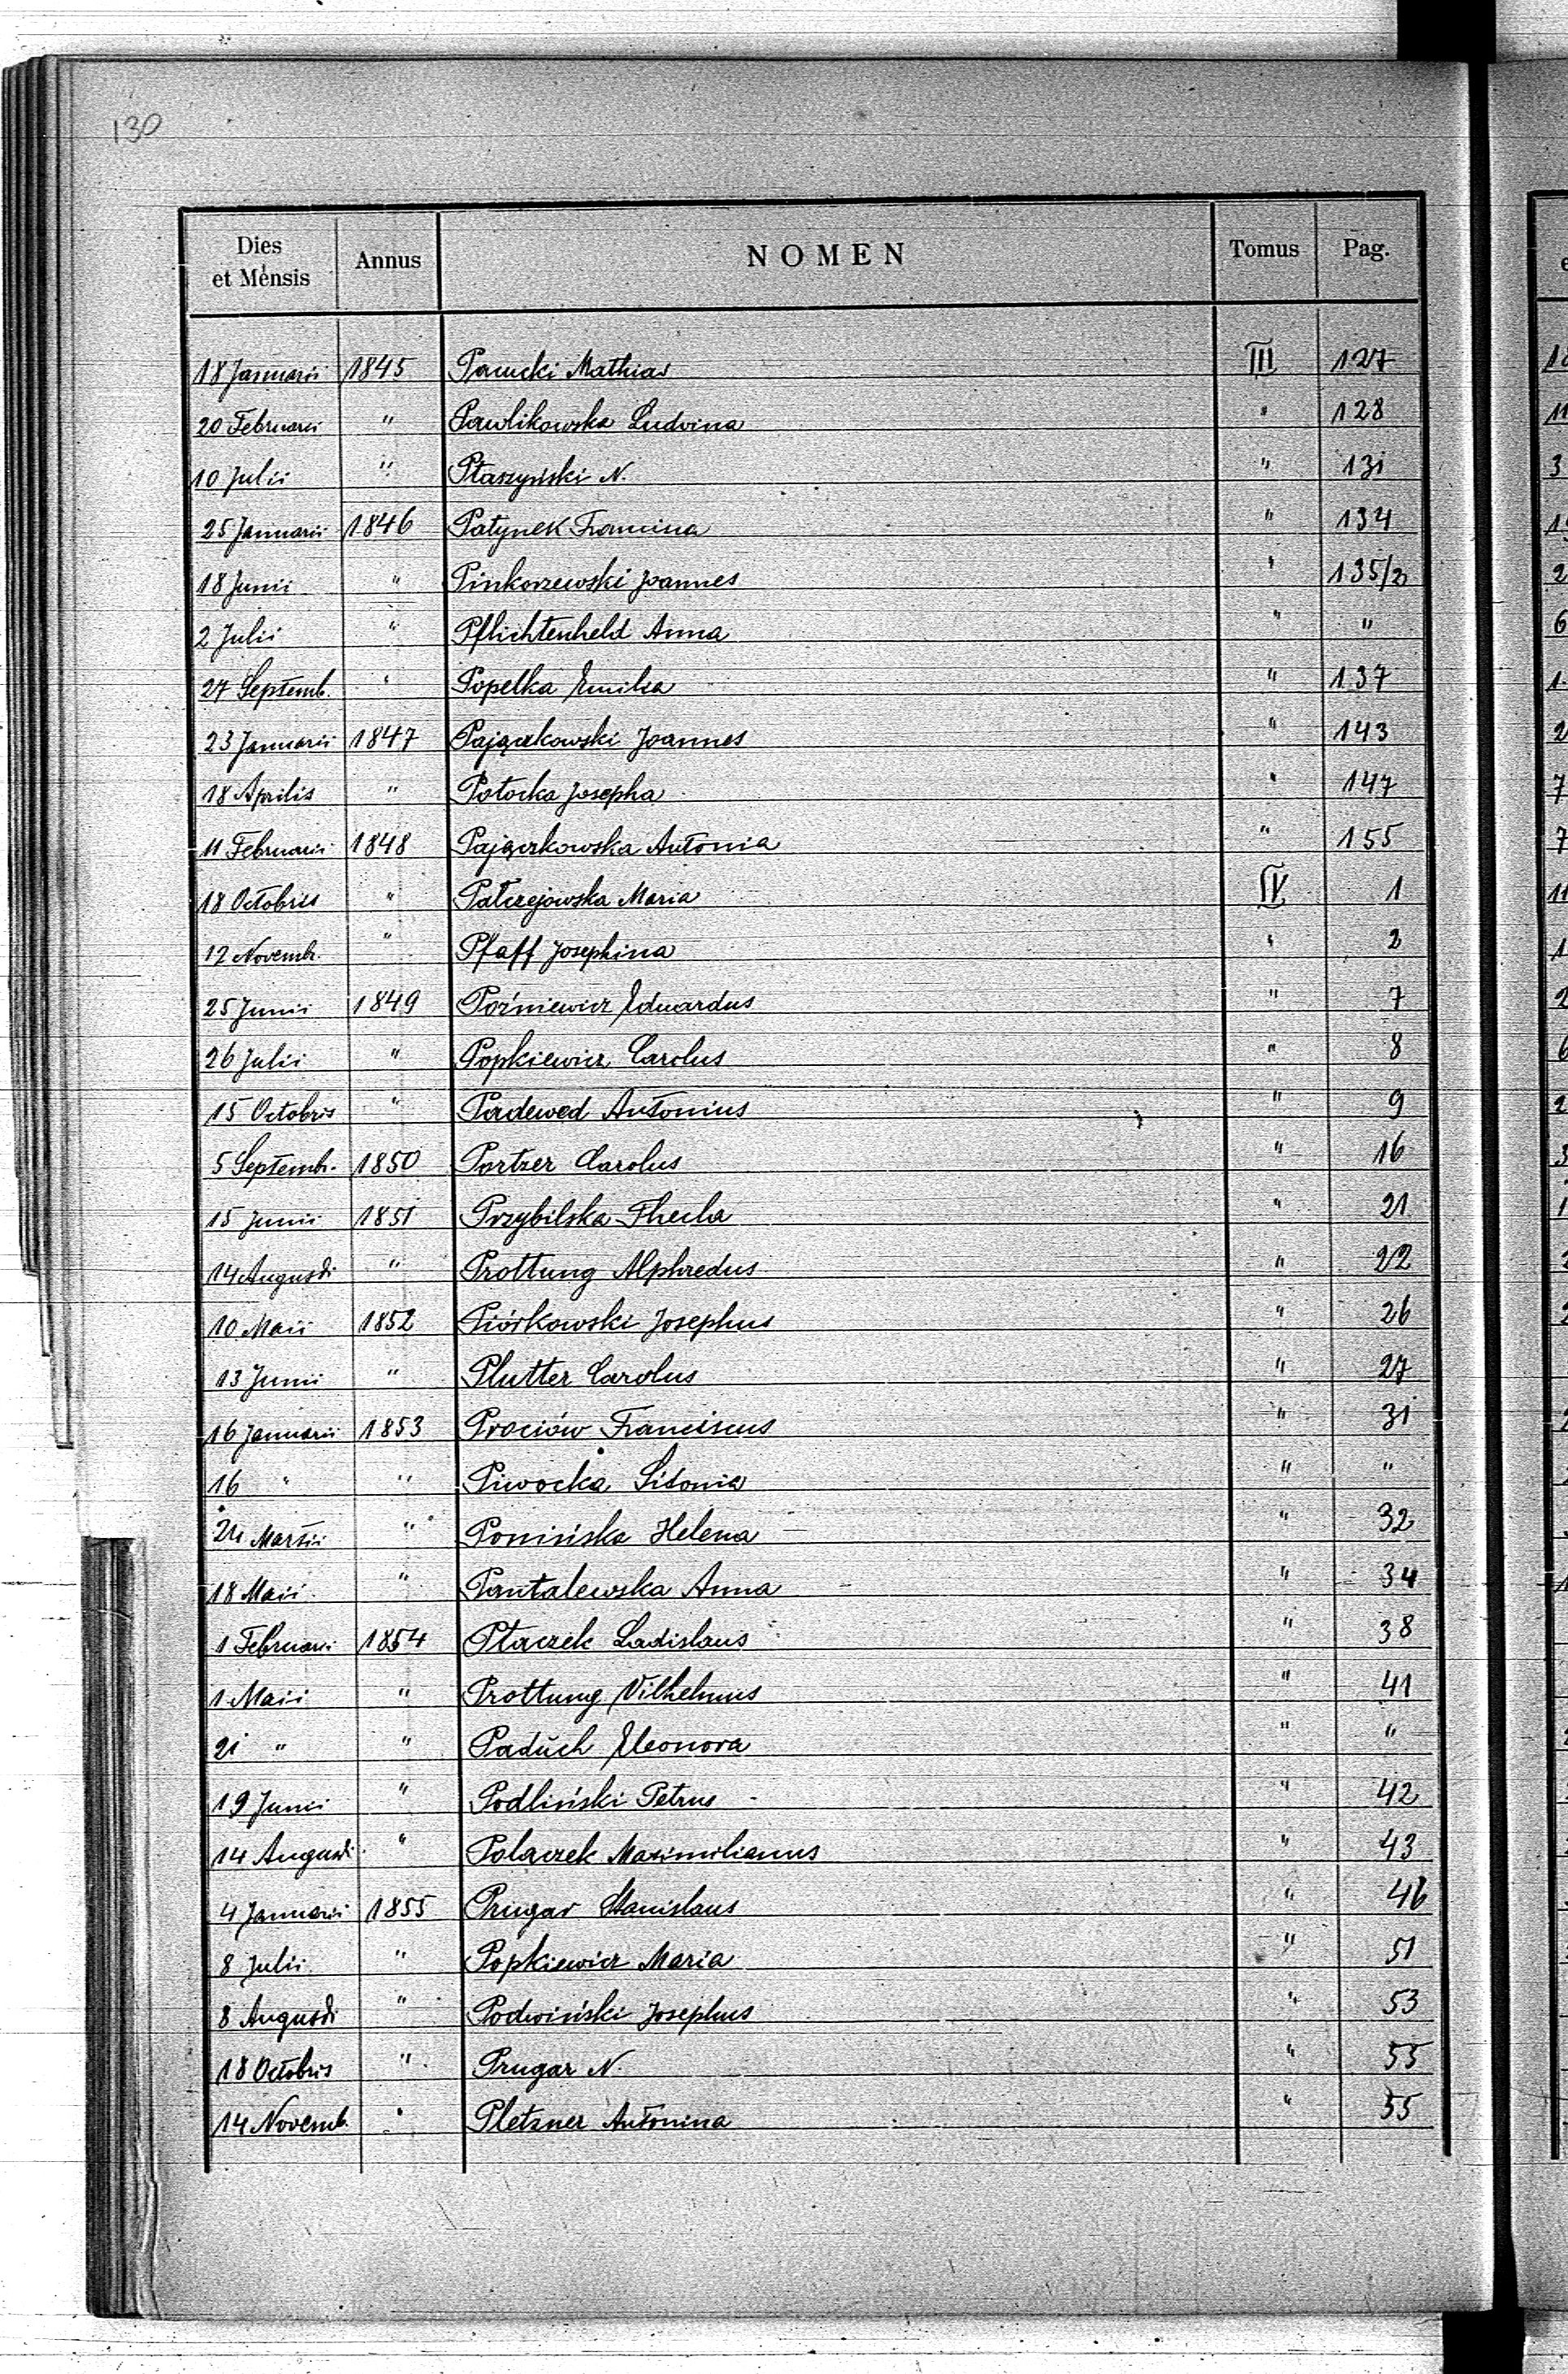 130
Dies et Mensis Annus NOMEN Tomus Pag.
18 Januarii 1845 Paucki Mathias III 127
20 Februarii " Pawlikowska Ludvina " 128
10 Julii " Ptaszyński N. " 131
25 Januarii 1846 Patynek " 134
18 Junii " Pinkorzewski Joannes " 135/2
2 Julii " Pflichtenheld Anna " "
27 Septemb. " Popelka Emilia " 137
23 Januarii 1847 Pajączkowski Joannes " 143
18 Aprilis " Potocka Josepha " 147
11 Februarii 1848 Pajączkowska Antonia " 155
18 Octobris " Patrzejowska Maria IV 1
12 Novemb. " Pfaff Josephina " 2
25 Junii 1849 Poźniewicz Eduardus " 7
26 Julii " Popkiewicz Carolus " 8
15 Octobris " Padewed Antonius " 9
5 Septemb. 1850 Portzer Carolus " 16
15 Junii 1851 Przybilska Thecla " 21
14 Augusti " Prottung Alphredus " 22
10 Maii 1852 Piórkowski Josephus " 26
13 Junii " Plutter Carolus " 27
16 Januarii 1853 Prociów Franciscus " 31
16 " " Piwocka Sidonia " "
24 Martii " Ponińska Helena " 32
18 Maii " Pantalewska Anna " 34
1 Februarii 1854 Ptaczek Ladislaus " 38
1 Maii " Prottung Vilhelmus " 41
21 " " Paduch Eleonora " "
19 Junii " Podliński Petrus " 42
14 Augusti " Polaczek Maximilianus " 43
4 Januarii 1855 Prugar Stanislaus " 46
8 Julii " Popkiewicz Maria " 51
8 Augusti " Podwiński Josephus " 53
18 Octobris " Prugar N. " 55
14 Novemb. " Pletzner Antonina " 55